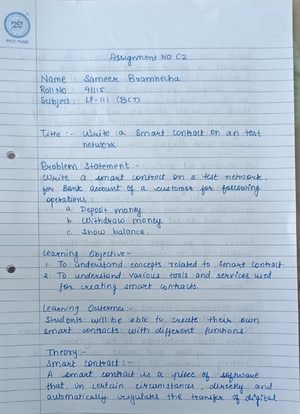 PICT
PICT, PUNE
Assignment NO C2
Name : Sameer Bramhecha
Roll No : 41115
Subject : LP-III (BCT)
Title :- Write a Smart Contract on an test
network
Problem Statement :-
Write a smart contract on a test network,
for Bank account of a customer for following
operations :
a. Deposit money
b. Withdraw money
c. Show balance.
Learning Objective :-
1. To understand concepts related to smart contract.
2. To understand various tools and services used
for creating smart contracts.
Learning Outcomes :-
Students will be able to create their own
smart contracts with different functions
Theory :-
Smart contract :-
A smart contract is a piece of software
that, in certain circumstances, directly and
automatically regulates the transfer of digital